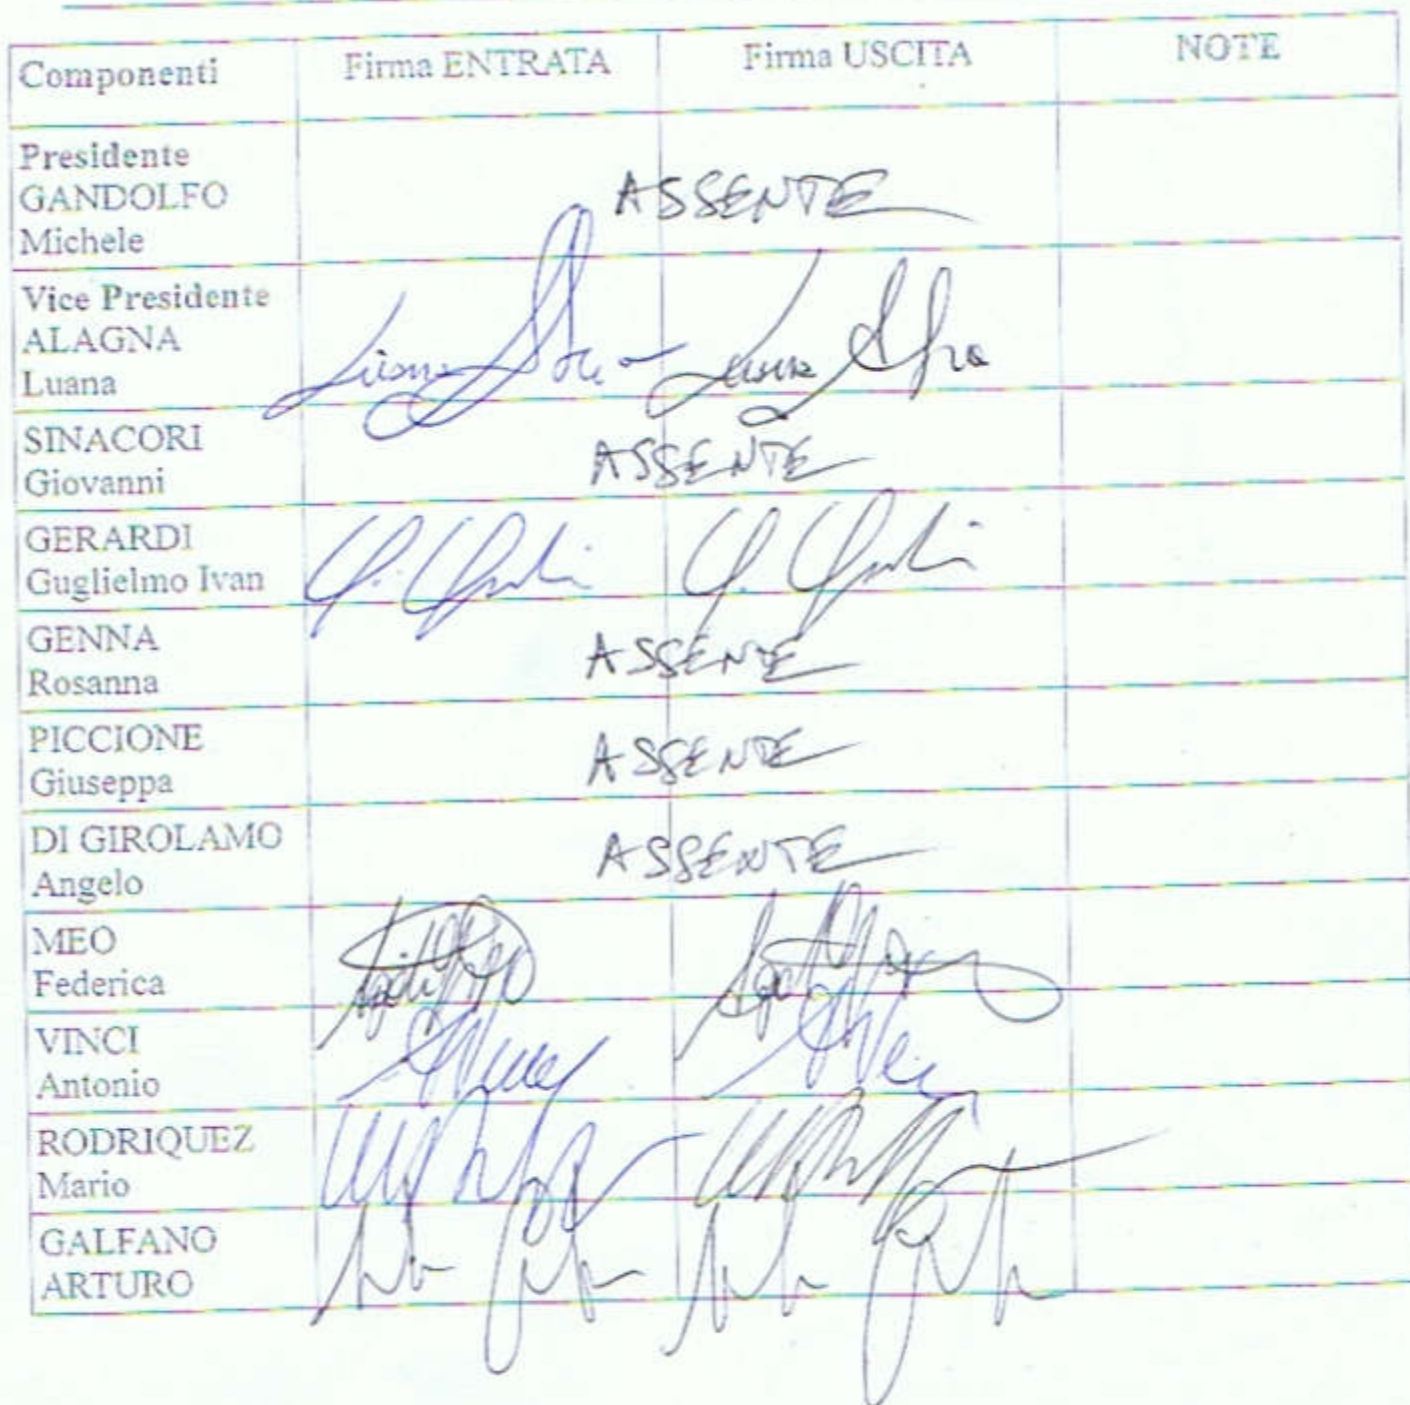 Componenti Firma ENTRATA Firma USCITA NOTE
Presidente
GANDOLFO
Michele
ASSENTE
Vice Presidente
ALAGNA
Luana
SINACORI
Giovanni
ASSENTE
GERARDI
Guglielmo Ivan
GENNA
Rosanna
ASSENTE
PICCIONE
Giuseppa
ASSENTE
DI GIROLAMO
Angelo
ASSENTE
MEO
Federica
VINCI
Antonio
RODRIQUEZ
Mario
GALFANO
ARTURO